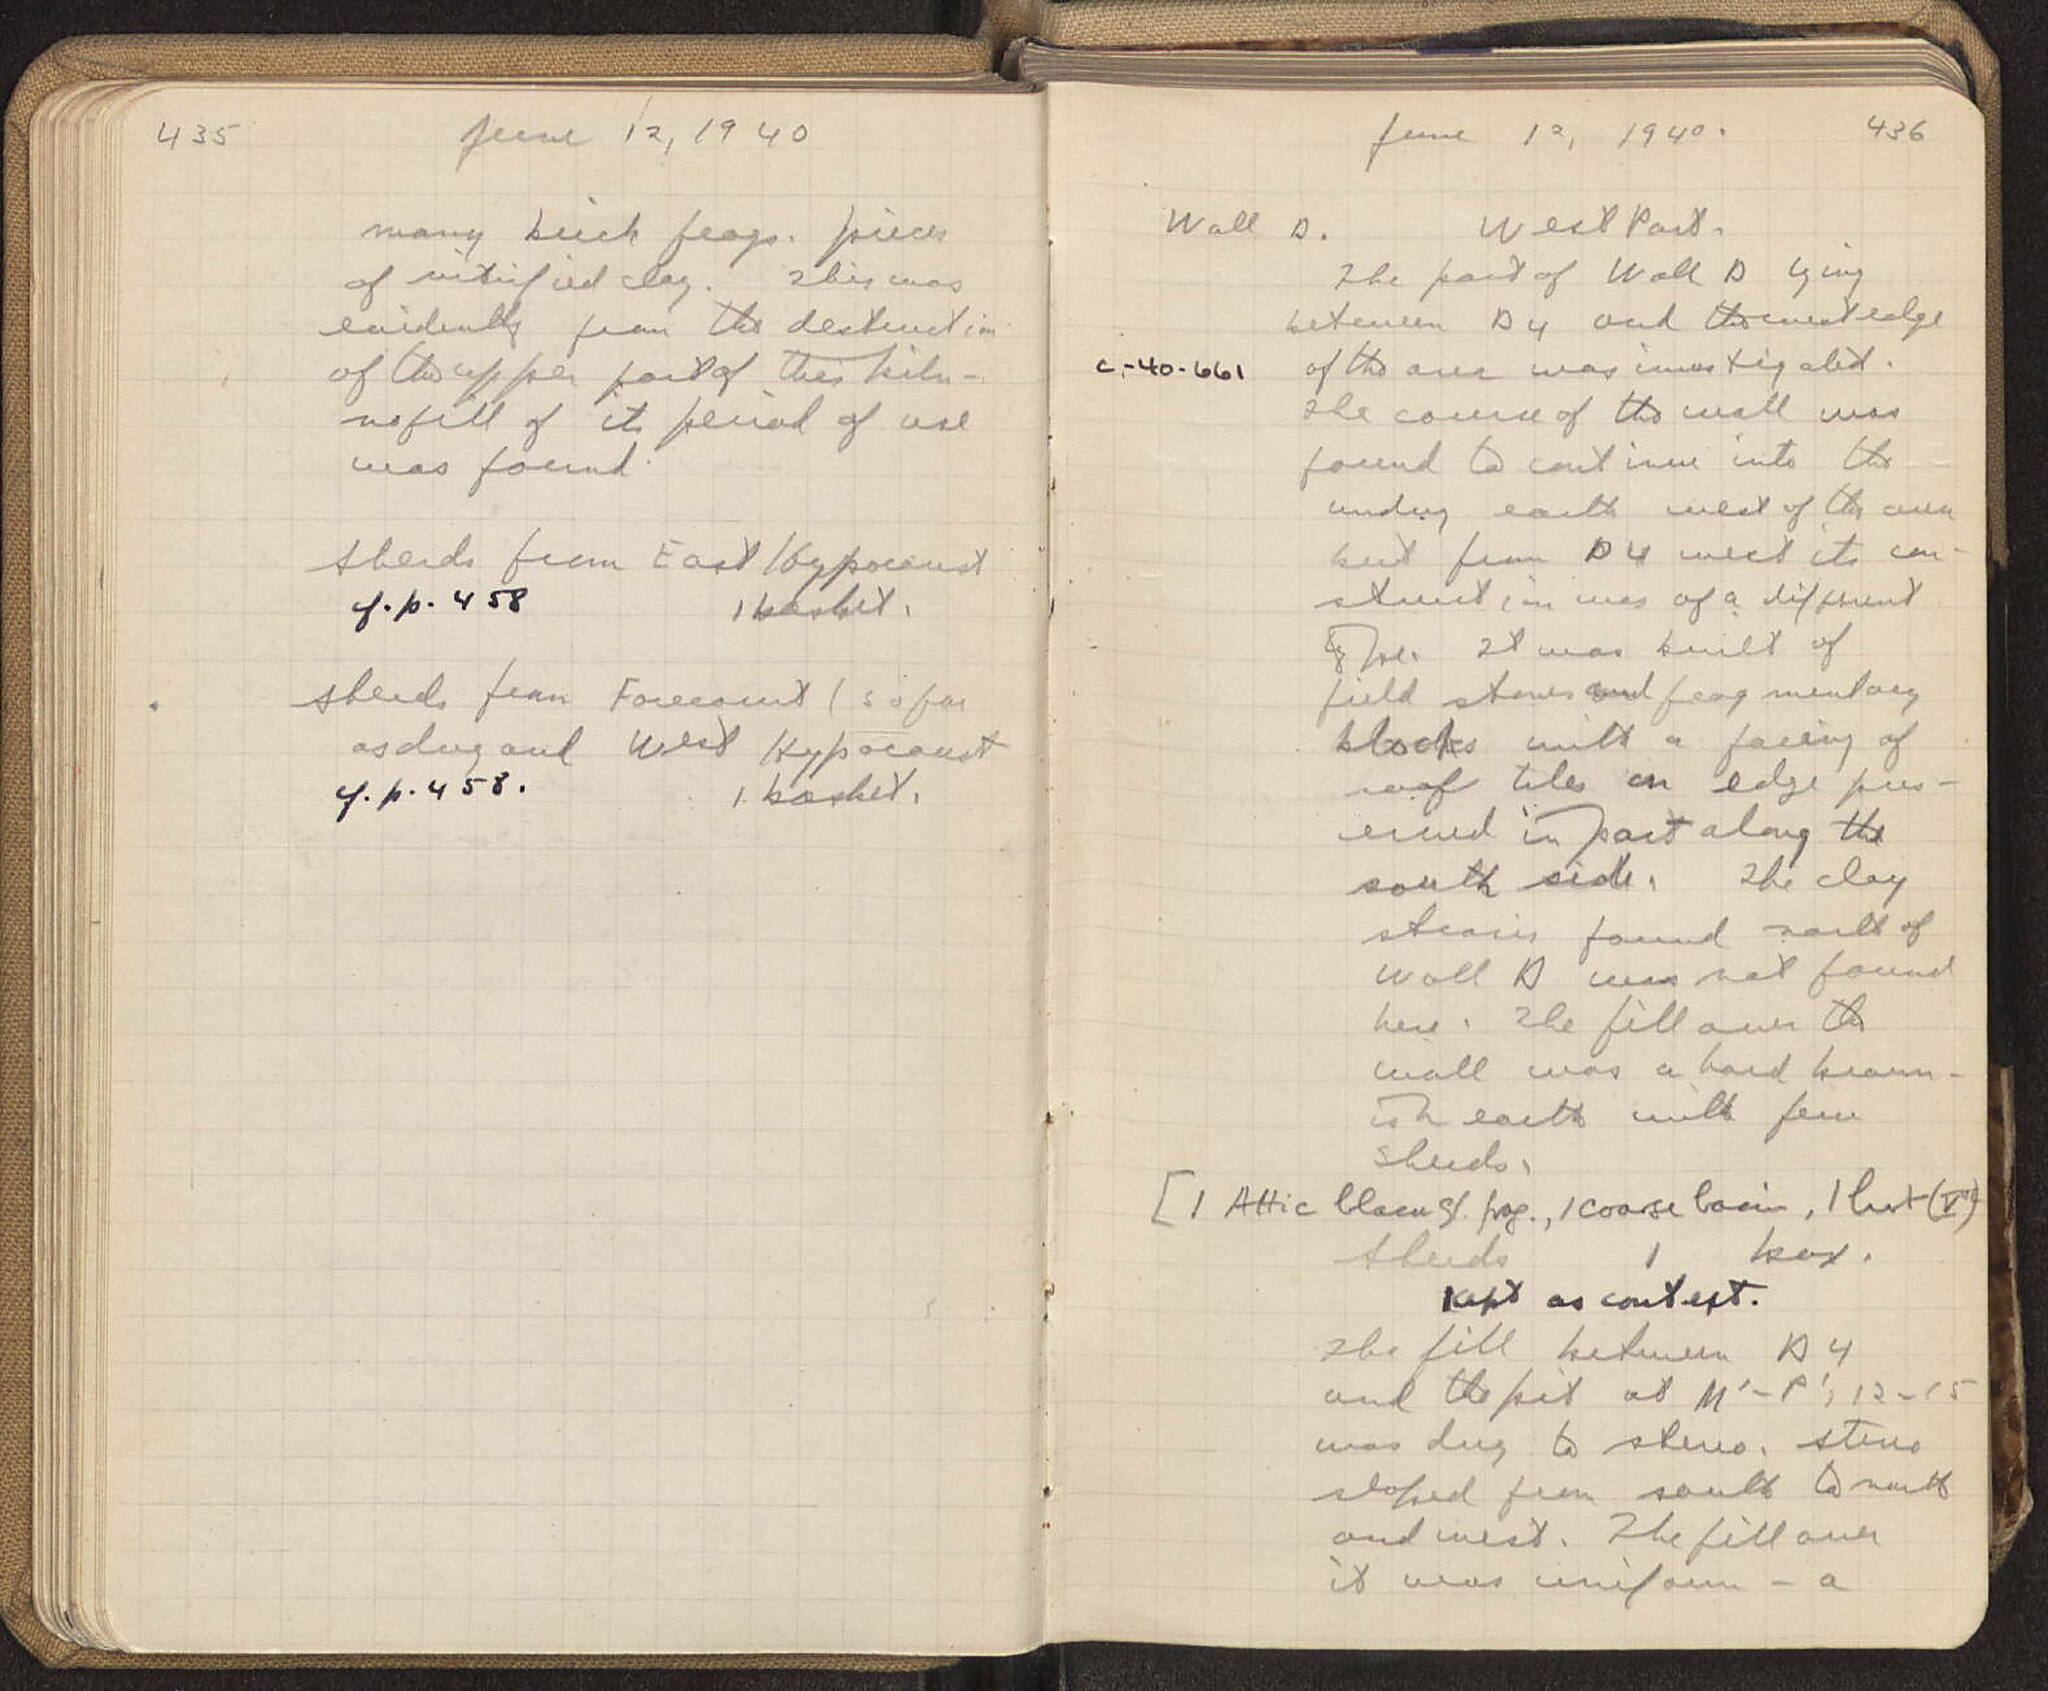 435 June 12, 1940
many brick frags. pieces
of vitrified clay. This was
evidently from the destruction
of the upper part of this kiln -
no fill of its period of use
was found.
Sherds from East Hypocaust
cf. p. 458 1 basket.
Sherds from Forecourt (so far
as dug and West Hypocaust
cf. p. 458. 1 basket.
June 12, 1940. 436
Wall D. West Part.
The part of Wall D lying
between D4 and the west edge
C-40-661 of the area was investigated.
The course of the wall was
found to continue into the
undug earth west of the area
but from D4 west its con-
struction was of a different
type. It was built of
field stones and fragmentary
blocks with a facing of
roof tiles on edge pres-
erved in part along the
south side. The clay
found north of
Wall D was not found
here. The fill over the
wall was a hard brown-
ish earth with few
sherds.
[1 Attic black gl. frag., 1 coarse basin, 1 (V)
Sherds 1 box.
Kept as context.
The fill between D4
and the pit at M'-P', 12-15
was dug to stereo. Stereo
sloped from south to north
and west. The fill over
it was uniform - a